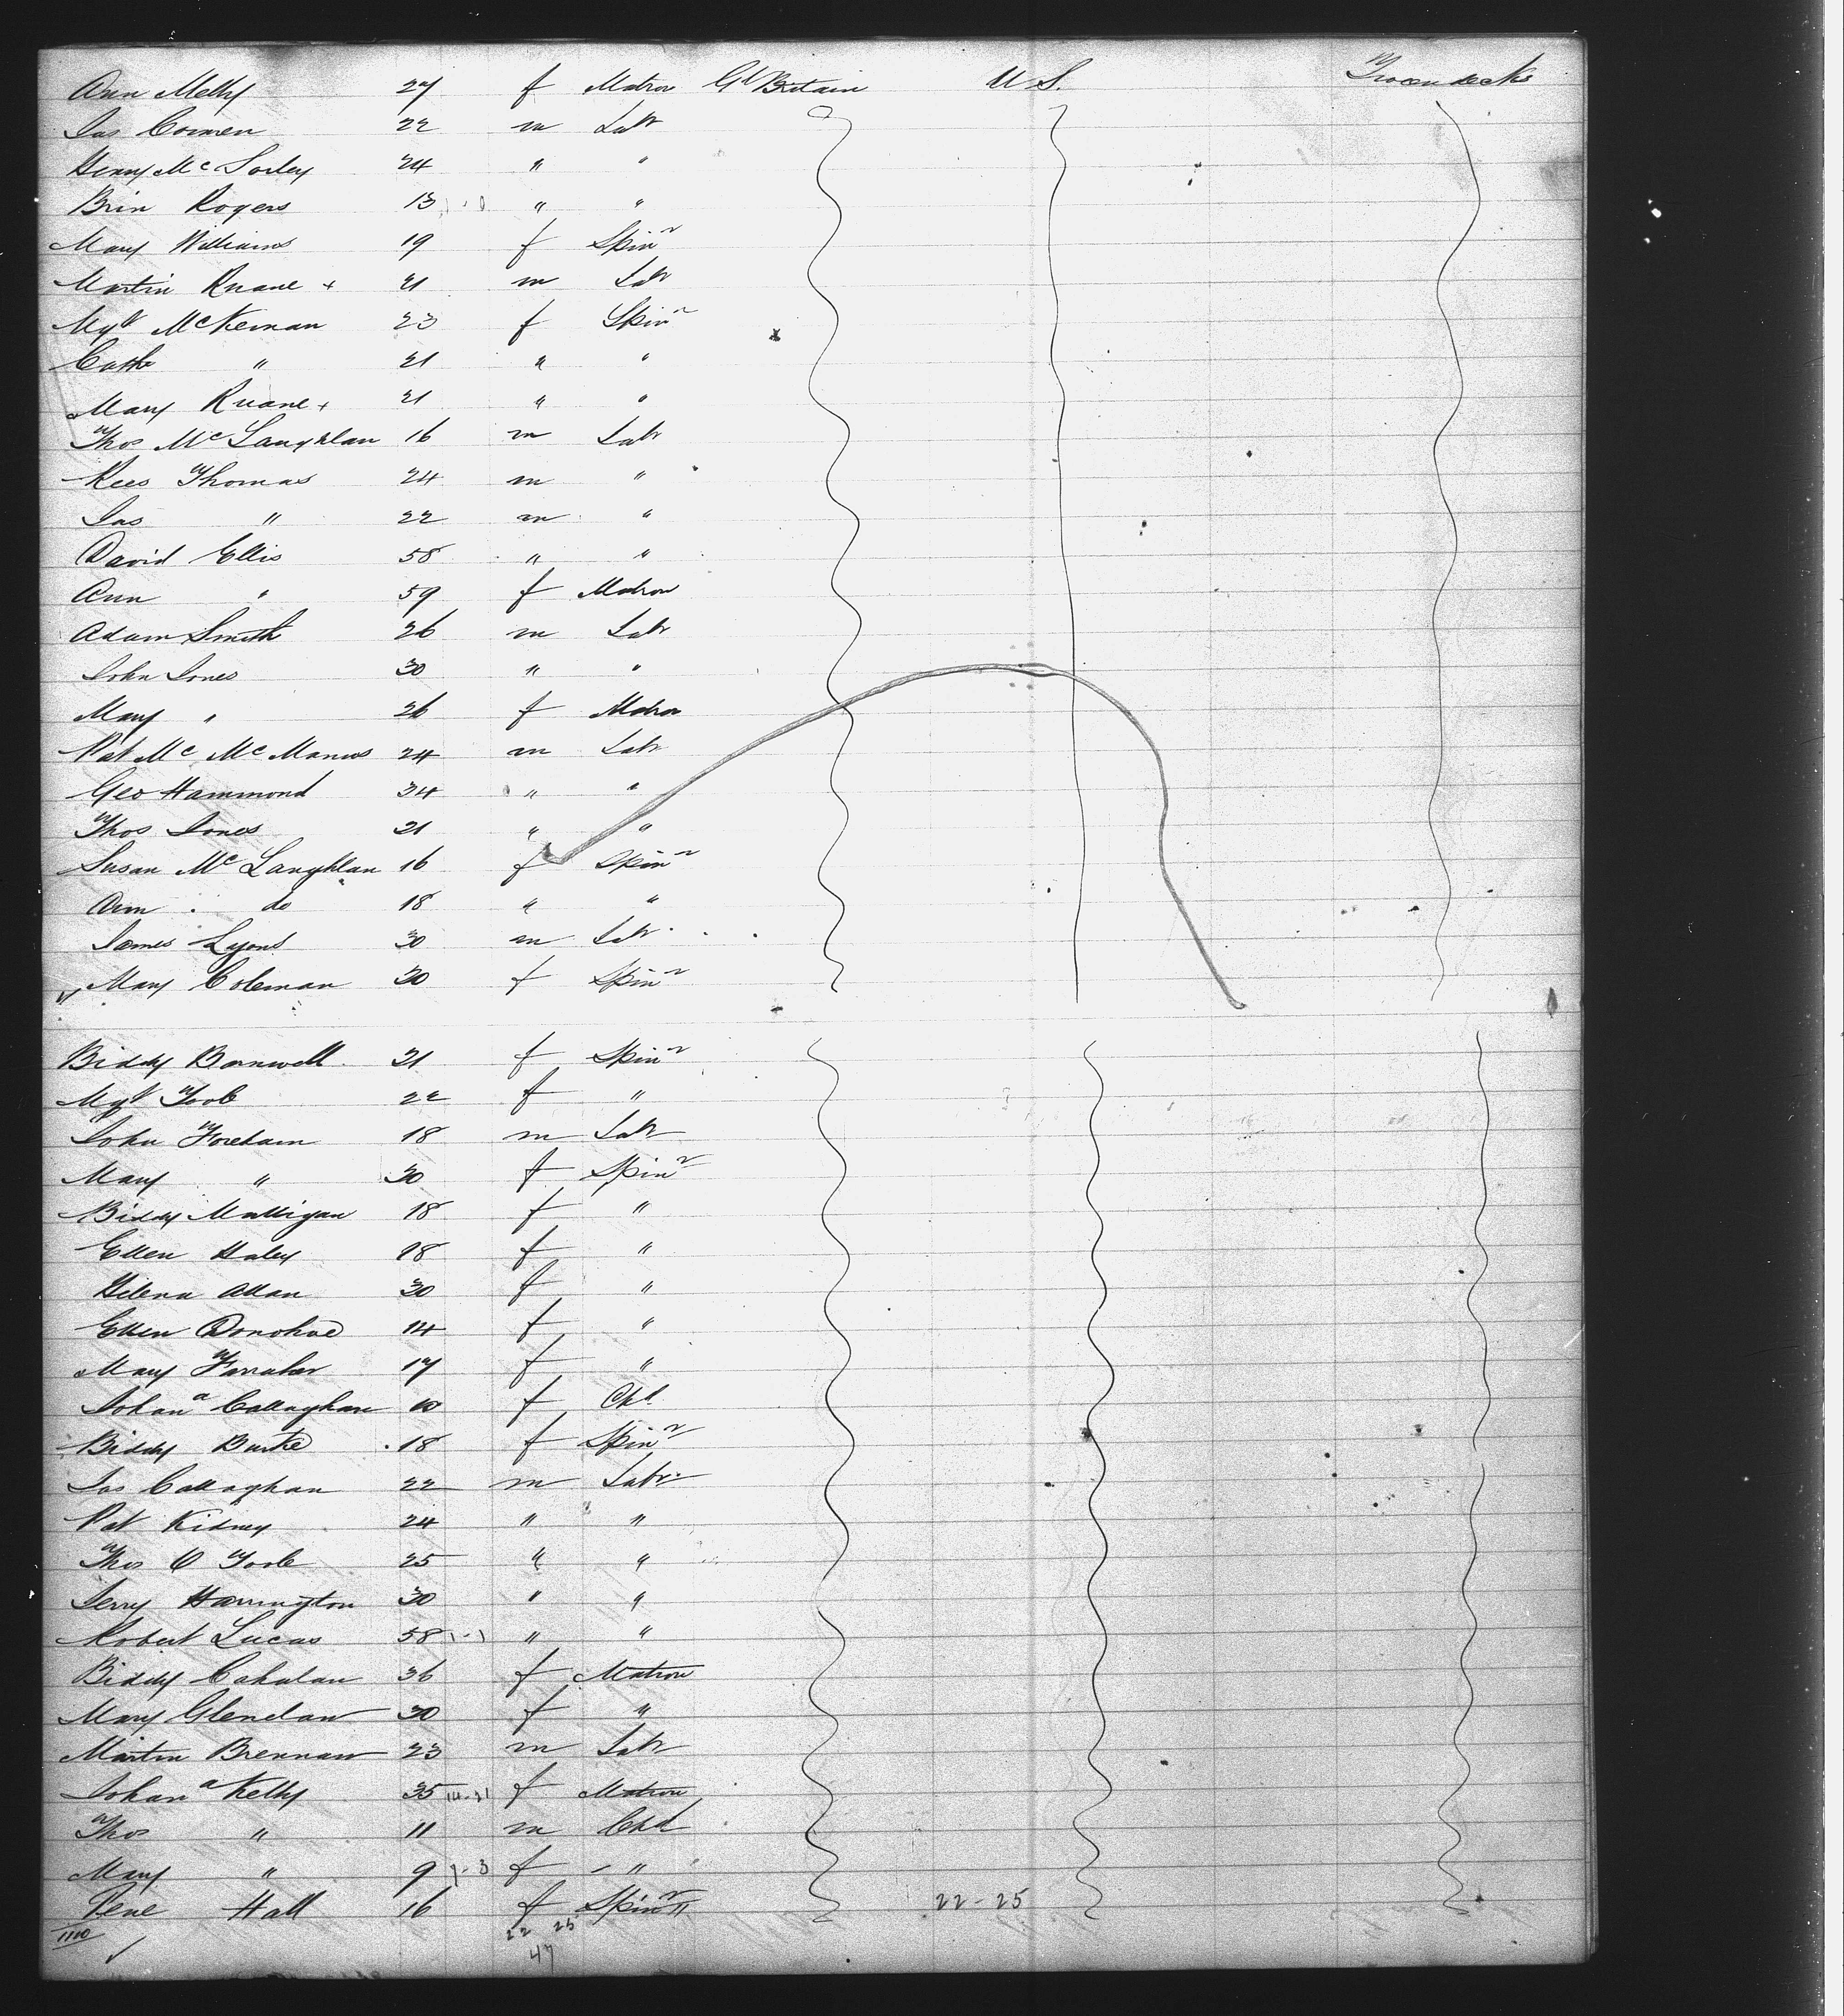 Ann Melly 27 f Matron Gt Britain U S. Tween decks
Jas Cormen 22 m Labr
Henry McSorley 24 " "
Brin Rogers 13 " "
Mary Williams 19 f Spinr
Martin Ruane + 21 m Labr
Mgt McKernan 23 f Spinr
Cathe " 21 " "
Mary Ruane + 21 " "
Thos McLaughlan 16 m Labr
Rees Thomas 24 m "
Jas " 22 m "
David Ellis 58 " "
Ann " 59 f Matron
Adam Smith 26 m Labr
John Jones 30 " "
Mary " 26 f Matron
Pat Mc McManus 24 m Labr
Geo Hammond 34 " "
Thos Jones 21 " "
Susan McLaughlan 16 f Spinr
Ann do 18 " "
James Lyons 30 m Labr
Mary Coleman 30 f Spinr
Biddy Barnwell 21 f Spinr
Mgt Toole 22 f "
John Foreham 18 m Labr
Mary " 30 f Spinr
Biddy Mulligan 18 f "
Ellen Haley 18 f "
Helena Allan 30 f "
Ellen Donohue 14 f "
Mary Farraher 17 f "
Johana Callaghan 10 f Chd
Biddy Burke 18 f Spinr
Jas Callaghan 22 m Labr
Pat Kidney 24 " "
Thos O Toole 25 " "
Jerry Harrington 30 " "
Robert Lucas 58 1-1 " "
Biddy Cahalan 36 f Matron
Mary Glenelaw 30 f "
Martin Brennan 23 m Labr
Johana Kelly 35 14-21 f Matron
Thos " 11 m Chd
Mary " 9 7-3 f "
Hall 16 f Spinr 22-25
1110 22 25
47